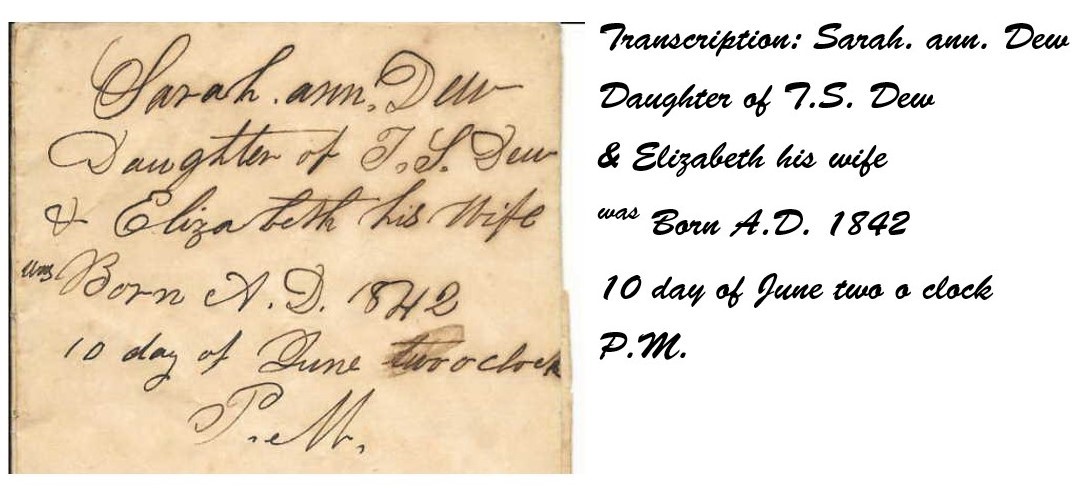 Sarah. ann. Dew
Daughter of T. S. Dew
& Elizabeth his Wife
was Born A. D. 1842
10 day of June two o clock
P. M.
Transcription: Sarah. ann. Dew
Daughter of T.S. Dew
& Elizabeth his wife
was Born A.D. 1842
10 day of June two o clock
P.M.